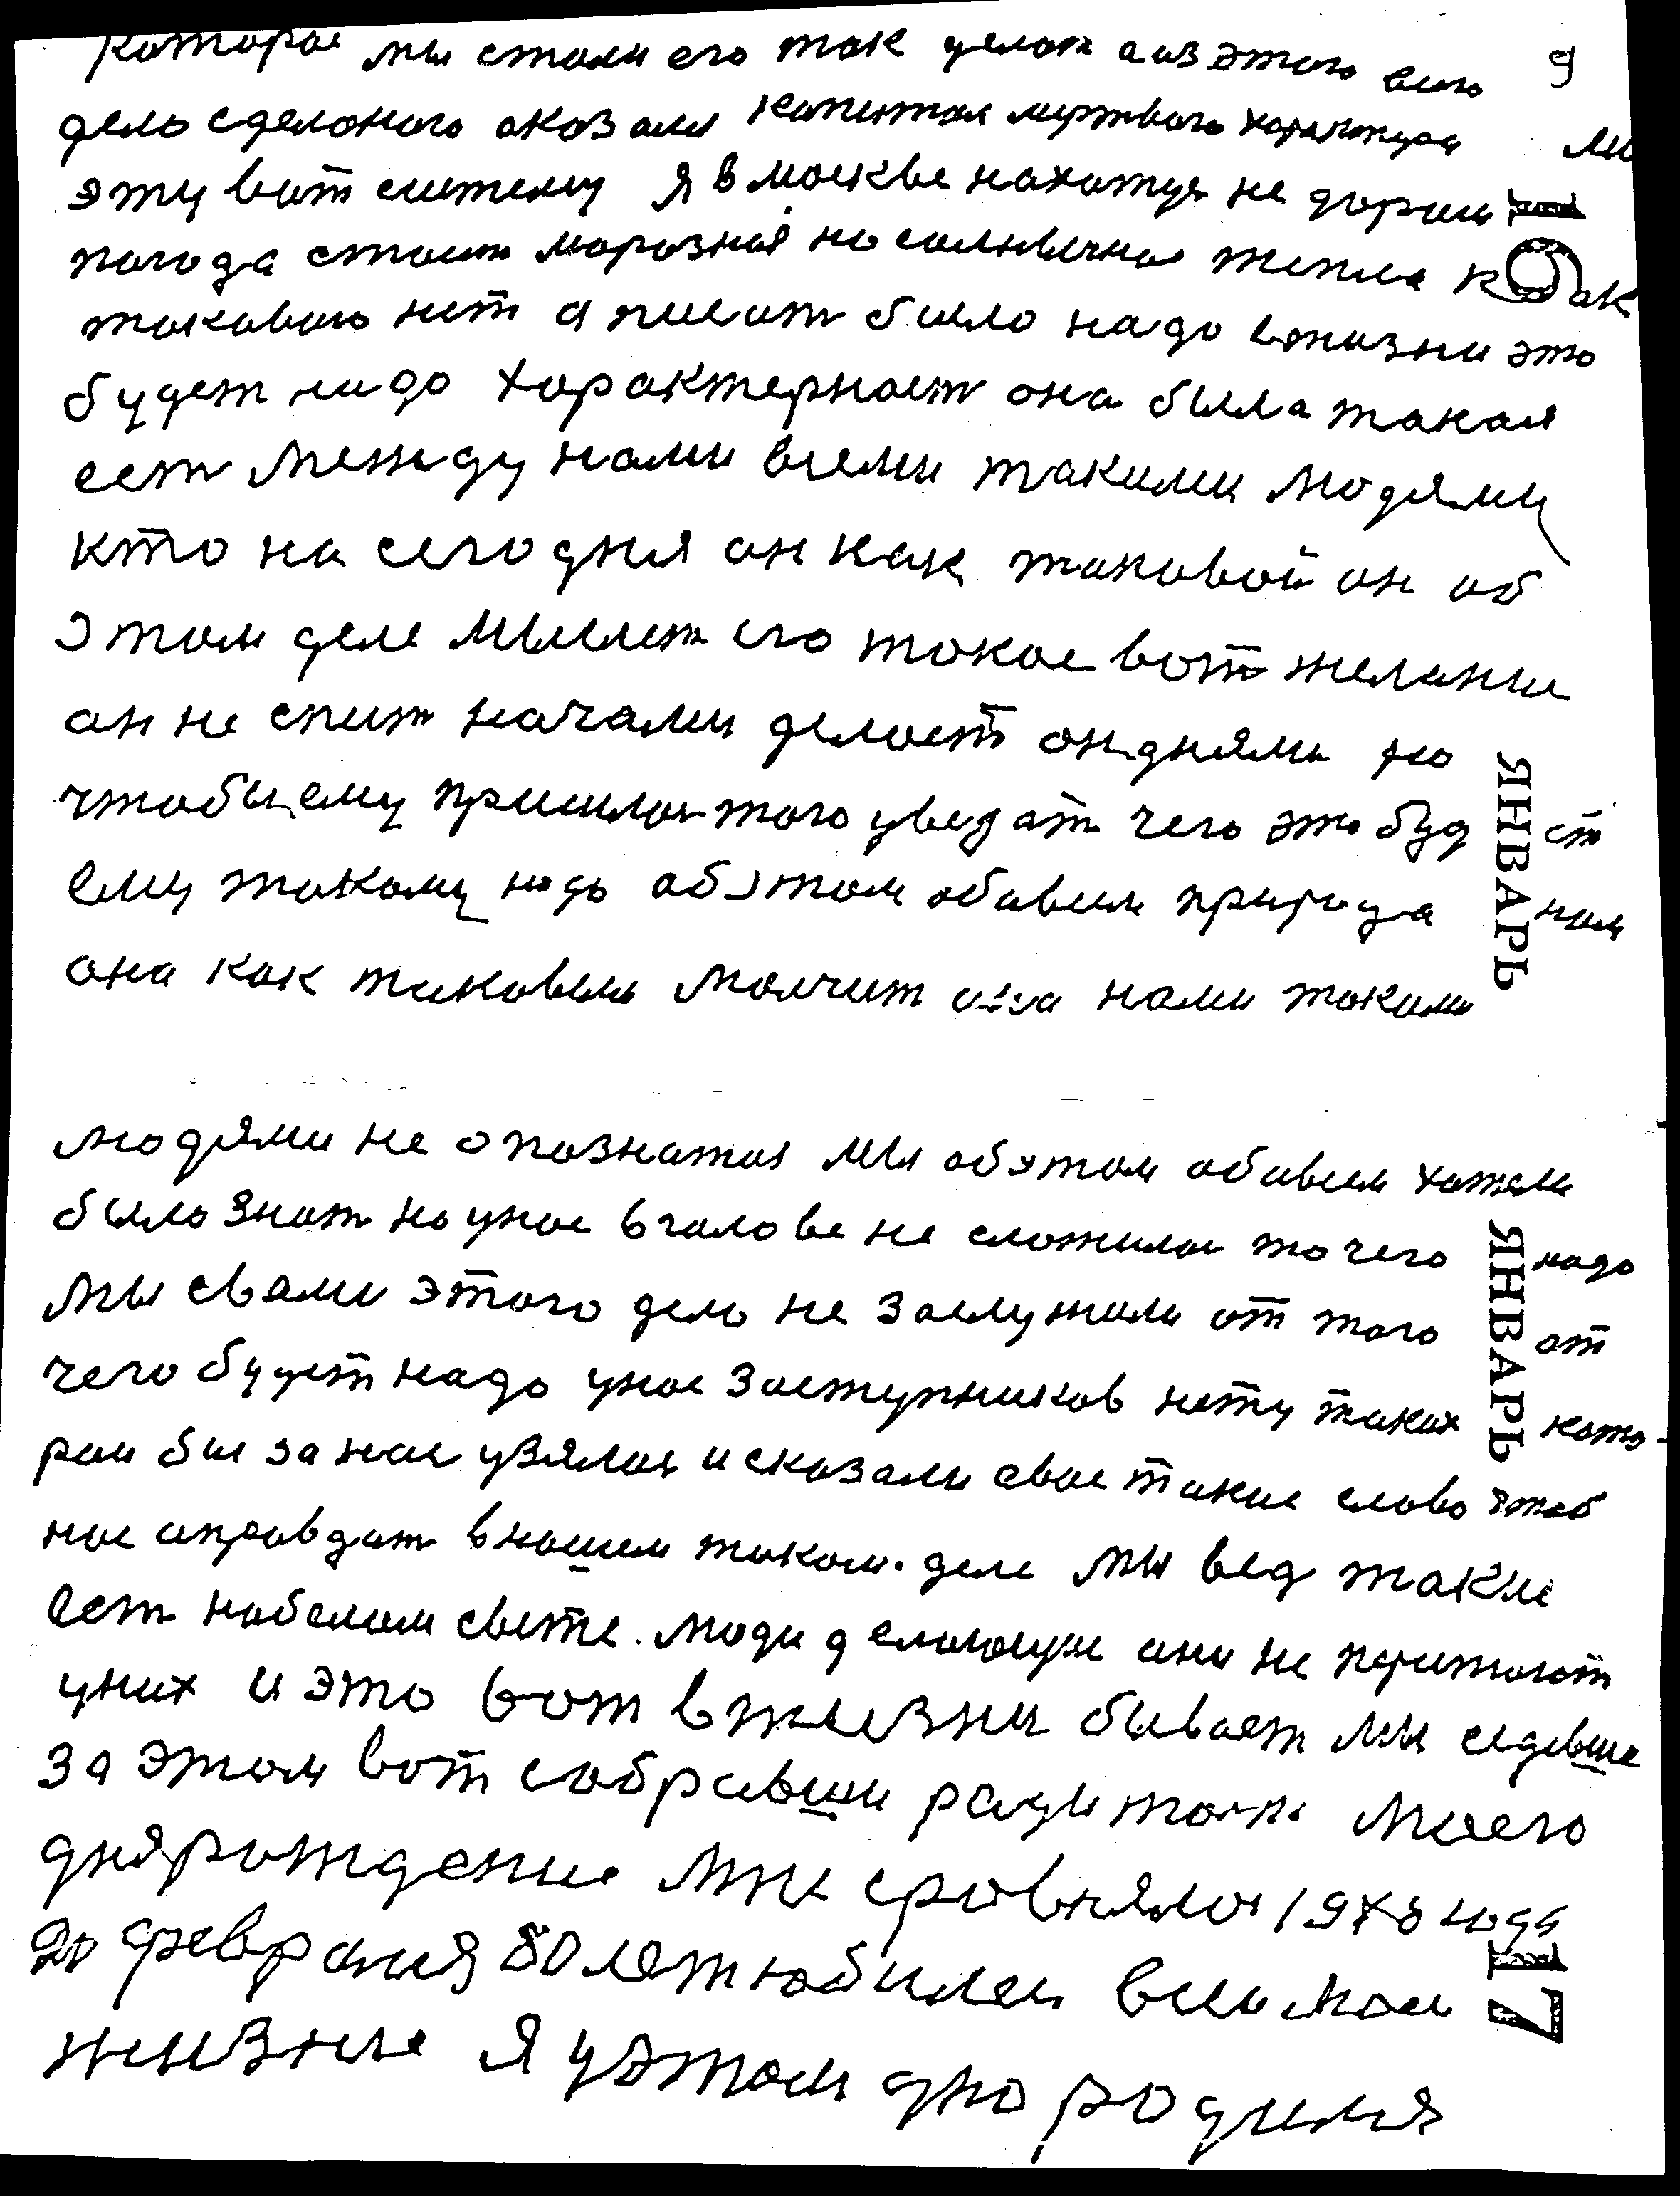 которое мы стали его так делат а из этого всего 9
дело сделоного оказался капитал мертвого характера мы
эту вот систему я в москве нахотус не дорош
погода стоит морозная но солнечное тепла как
токового нет а писат было надо в жизни это
будет надо характерност она была такая
ест между нами всеми такими людями
кто на сегодня он как таковой он об
этом деле мыслет его токое вот желание
он не спит ночами делоет он днями но
чтобы ему пришлос того уведат чего это будет
ему токому надо об этом обовсем природа нам
она как таковыя молчит она нами токими
людями не опознатоя мы об этом обовсем хотели
было знат но унос в голове не сложилос то чего надо
мы с вами этого дело не заслужили от того от
чего будет надо унас заступников нету таких кото-
рои бы за нас узялис и сказали свое такие слово чтоб
нас оправдат в ношем таком деле мы вед такие
ест на белом свете люди делоющие они не получают
у них и это вот в жизни бывает мы седевше
за этом вот собравши ради моего
дня рождение мне сровнялос 1978 года
20 февраля 80 лет юбилеи всеи моеи
жизние я у этом дно родился
16
ЯНВАРЬ
ЯНВАРЬ
17